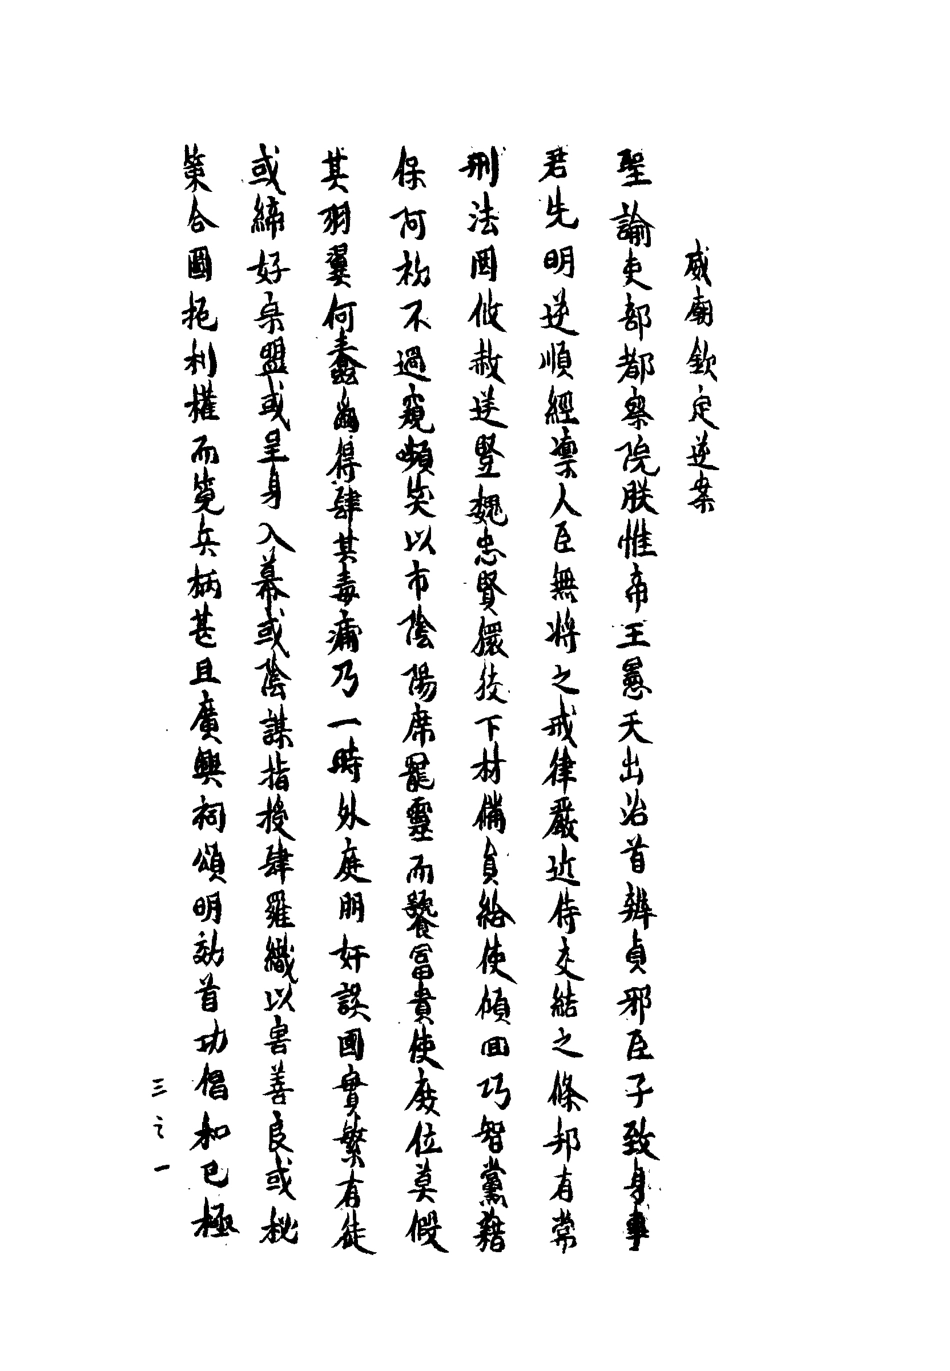 威廟欽定逆案
聖諭吏部都察院朕惟帝王憲天出治首辨貞邪臣子致身事
君先明逆順經凛人臣無將之戒律嚴近侍交結之條邦有常
刑法罔攸赦逆豎魏忠賢猥狡下材備員給使傾回巧智黨藉
保阿初不過窺嚬笑以市陰陽席寵靈而饕富貴使庶位莫假
其羽翼何蠢爾得肆其毒痡乃一時外庭朋奸誤國實繁有徒
或締好宗盟或呈身入幕或陰謀指授肆羅織以害善良或秘
策合圖扼利權而筦兵柄甚且廣興祠頌明効首功倡和已極
三之一